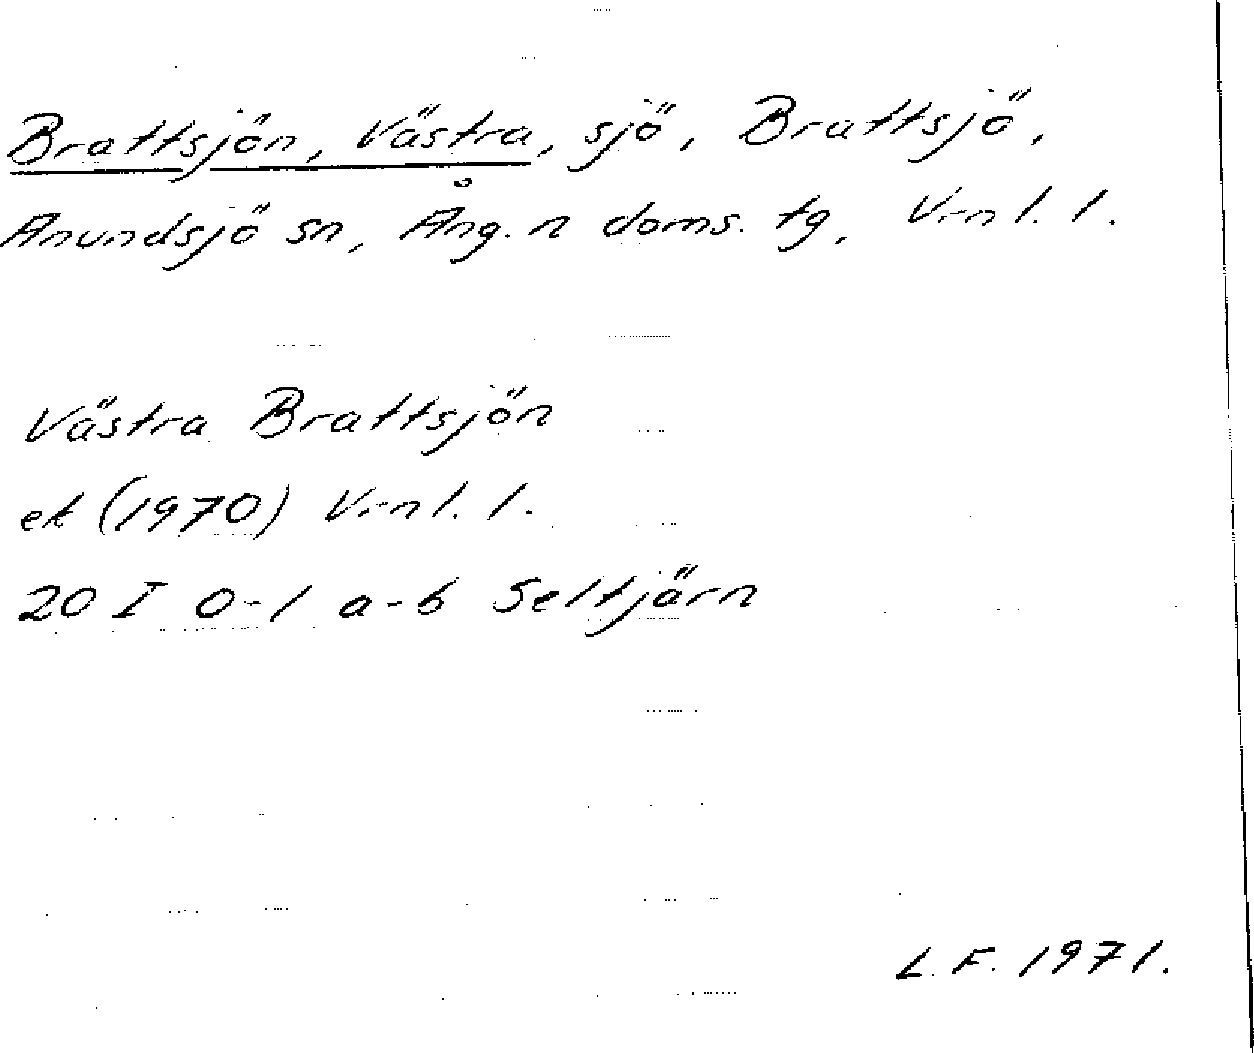 Brattsjön, Västra, sjö, Brattsjö,
Anundsjö sn, Ång. n doms. tg, Vrnl. l.
Västra Brattsjön
ek (1970) Vrnl. l.
20 I 0-1 a-b Seltjärn
L. F. 1971.